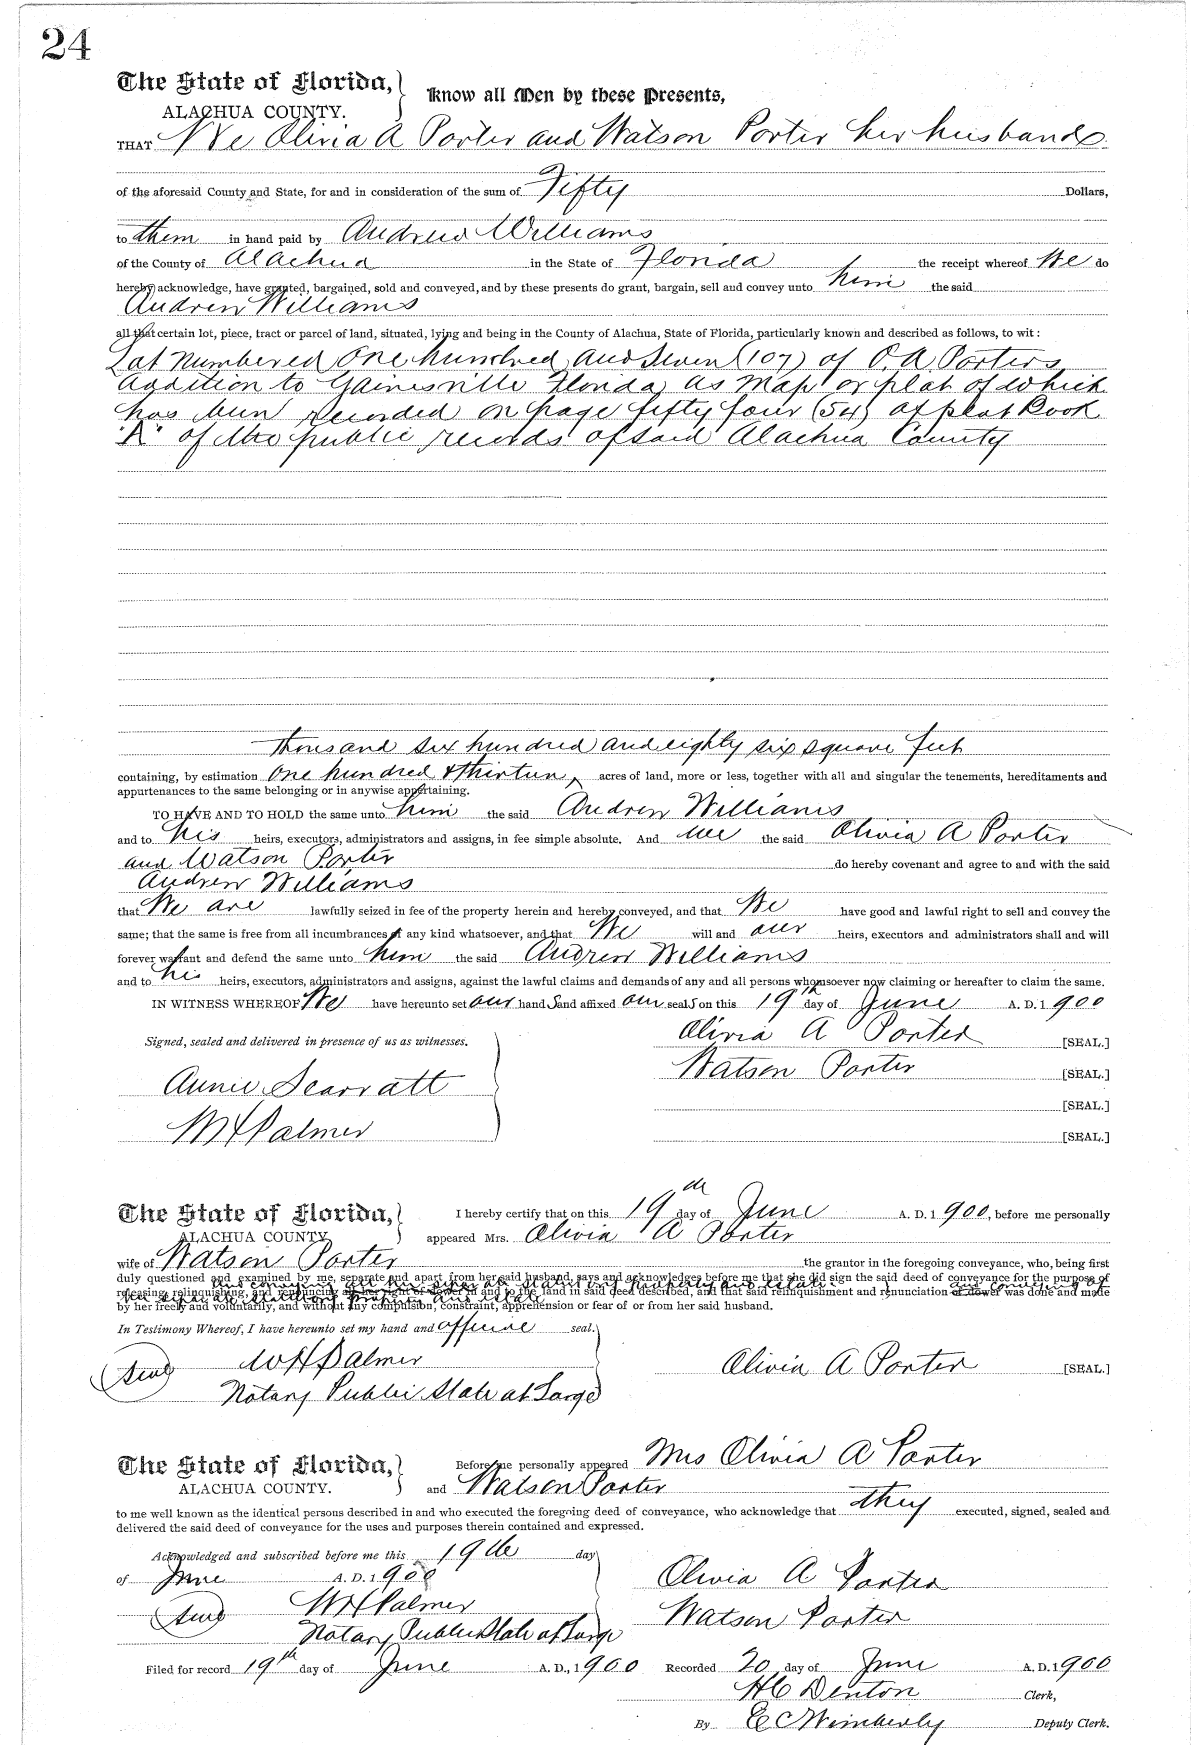 24
The State of Florida, Know all Men by these Presents,
ALACHUA COUNTY.
THAT We Olivia A Porter and Watson Porter her husband
of the aforesaid County and State, for and in consideration of the sum of Fifty Dollars,
to them in hand paid by Andrew Williams
of the County of Alachua in the State of Florida the receipt whereof We do
hereby acknowledge, have granted, bargained, sold and conveyed, and by these presents do grant, bargain, sell and convey unto him the said
Andrew Williams
all that certain lot, piece, tract or parcel of land, situated, lying and being in the County of Alachua, State of Florida, particularly known and described as follows, to wit:
Lot Numbered One hundred and Seven (107) of O. A. Porters
addition to Gainesville Florida as Map or plat of which
has been recorded on page fifty four (54) of plat Book
"A" of the public records of said Alachua County
thousand six hundred and eighty six square feet
containing, by estimation one hundred & thirteen ^ acres of land, more or less, together with all and singular the tenements, hereditaments and
appurtenances to the same belonging or in anywise appertaining.
TO HAVE AND TO HOLD the same unto him the said Andrew Williams
and to his heirs, executors, administrators and assigns, in fee simple absolute. And we the said Olivia A Porter
and Watson Porter do hereby covenant and agree to and with the said
Andrew Williams
that We are lawfully seized in fee of the property herein and hereby conveyed, and that We have good and lawful right to sell and convey the
same; that the same is free from all incumbrances of any kind whatsoever, and that We will and our heirs, executors and administrators shall and will
forever warrant and defend the same unto him the said Andrew Williams
and to his heirs, executors, administrators and assigns, against the lawful claims and demands of any and all persons whomsoever now claiming or hereafter to claim the same.
IN WITNESS WHEREOF We have hereunto set our hands and affixed our seals on this 19th day of June A. D. 1900
Olivia A Porter [SEAL.]
Signed, sealed and delivered in presence of us as witnesses.
Watson Porter [SEAL.]
Annie Scarratt
[SEAL.]
M H Palmer [SEAL.]
The State of Florida, I hereby certify that on this 19th day of June A. D. 1900, before me personally
ALACHUA COUNTY appeared Mrs. Olivia A Porter
wife of Watson Porter the grantor in the foregoing conveyance, who, being first
duly questioned and examined by me, separate and apart from her said husband, says and acknowledges before me that she did sign the said deed of conveyance for the purpose of
releasing, relinquishing, and renouncing all her right of dower in and to the land in said deed described, and that said relinquishment and renunciation of dower was done and made
by her freely and voluntarily, and without any compulsion, constraint, apprehension or fear of or from her said husband.
In Testimony Whereof, I have hereunto set my hand and official seal.
Seal W H Palmer Olivia A Porter [SEAL.]
Notary Public State at Large
The State of Florida, Before me personally appeared Mrs Olivia A Porter
ALACHUA COUNTY. and Watson Porter
to me well known as the identical persons described in and who executed the foregoing deed of conveyance, who acknowledge that they executed, signed, sealed and
delivered the said deed of conveyance for the uses and purposes therein contained and expressed.
Acknowledged and subscribed before me this 19th day
of June A. D. 1900 Olivia A Porter
Seal W H Palmer Watson Porter
Notary Public State at Large
Filed for record 19th day of June A. D., 1900 Recorded 20 day of June A. D. 1900
H C Denton Clerk,
By E C Wimberly Deputy Clerk.